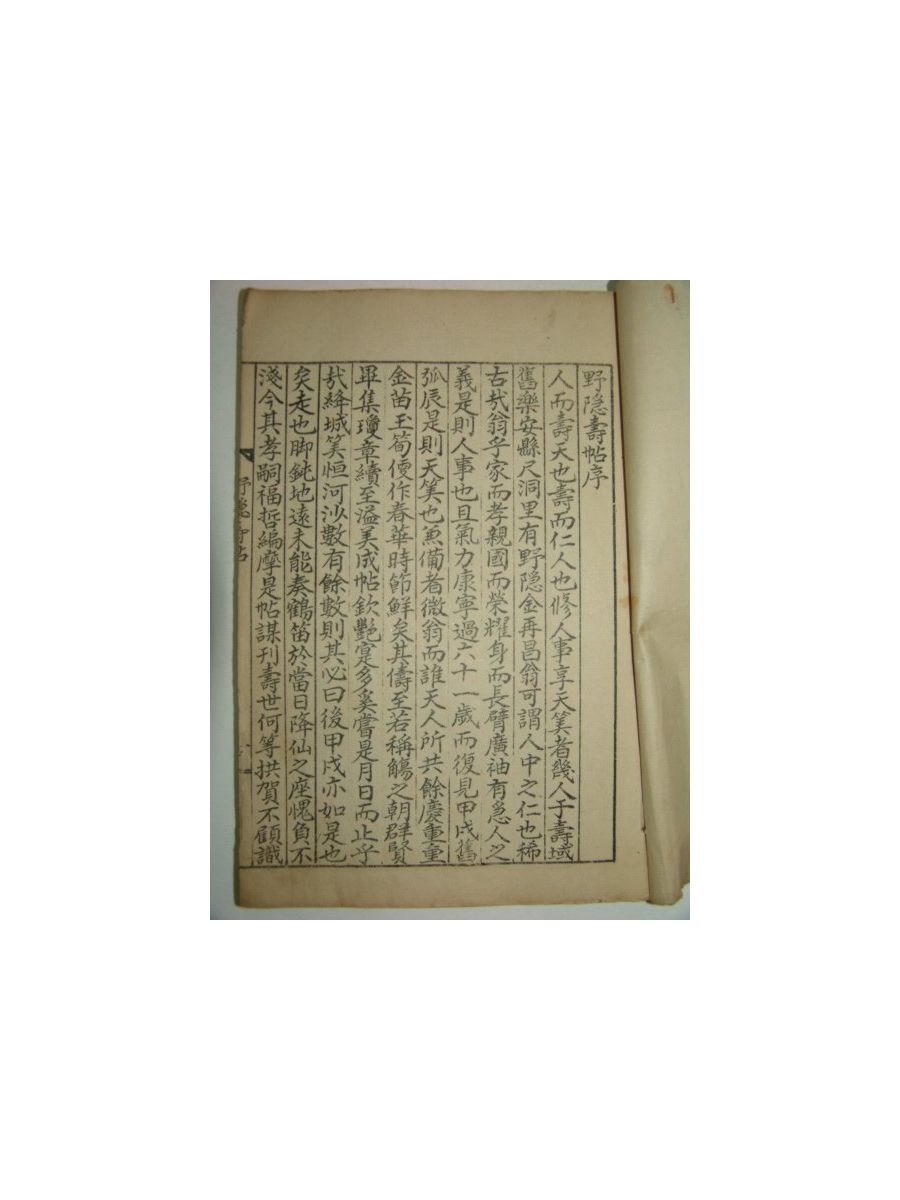 野隐壽帖序
人而壽天也壽而仁人也修人事享天筭者幾人于壽域
舊樂安縣尺洞里有野隐金再昌翁可謂人中之仁也稀
古㢤翁乎家而孝親國而榮耀身而長臂廣袖有急人之
義是則人事也且氣力康寧過六十一歲而復見甲戌舊
弧辰是則天筭也兼備者微翁而誰天人所共餘慶重重
金苗玉筍便作春華時節鮮矣其儔至若稱觴之朝群賢
畢集瓊章續至溢美成帖欽艶寔多奚嘗是月日而止乎
㢤絳城筭恒河沙數有餘數則其必曰後甲戌亦如是也
矣走也脚鈍地遠未能奏鶴笛於當日降仙之座愧負不
淺今其孝嗣福哲編摩是帖謀刊壽世何等拱賀不顧識
野隐壽帖